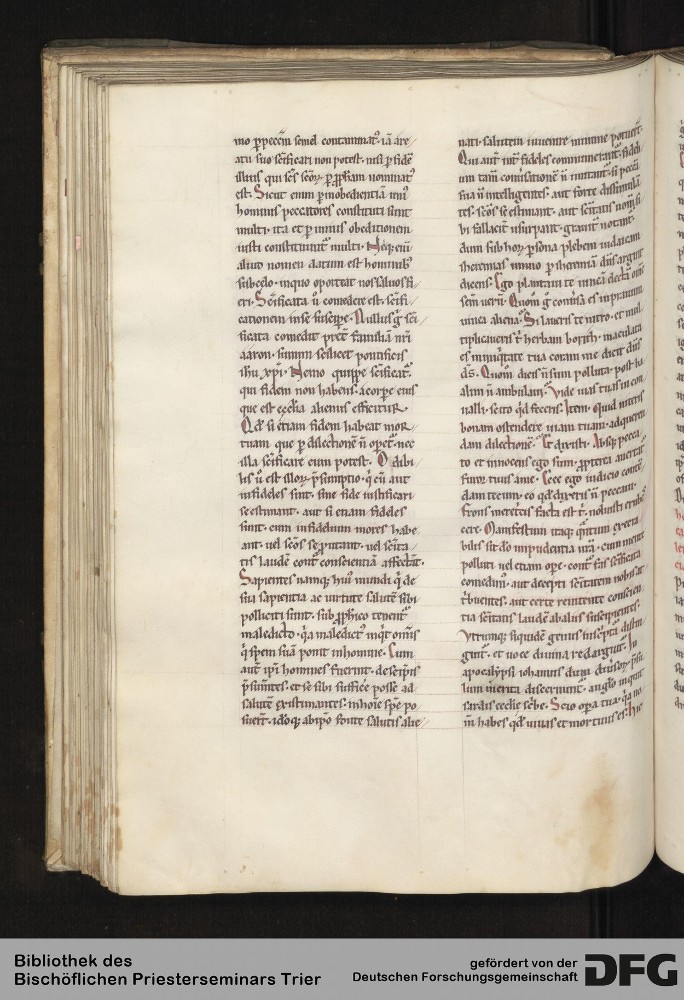 mo p̄ peccm̄ semel contaminat᷒. iā are
atu suo sc̄ificari non potest. nisi p̄ fidē
illius qui sc̄s sc̄oꝝ p̄ p̄phām nominat᷒
est. Sicut enim p̄ inobedientiā uni᷒
hominis peccatores constituti sunt
multi. ita et p̄ unius obeditionem
iusti constituunt᷒ multi. Neq; eni᷒
aliud nomen datum est hominib᷒
sub celo. in quo oporteat nos saluos fi
eri. Sc̄ificata ū comedere est. sc̄ifi
cationem in se suscipe. Nullus g̊ sc̄i
ficata comedit pret̄ familiam nr̄i
aaron. summi scilicet pontificis
ih̄u xp̄i. Nemo quippe sc̄ificat᷒.
qui fidem non habens. a corpe eius
que est eccl̄ia alienus efficitur.
Qd̄ si etiam fidem habeat mor
tuam que p̄ dilectionē n̄ opet᷒. nec
illa sc̄ificare eum potest. O dibi
lis ū est illoꝝ p̄sumptio. q̇ cū aut
infideles sint. sine fide iustificari
se estimant. aut si etiam fideles
sunt. cum infidelium mores habe
ant. uel sc̄os se putant. uel sc̄ita
tis laudē cont᷒ conscientiā affectāt.
Sapientes namq; hui᷒ mundi q̇ de
sua sapientia ac uirtute salutē sibi
polliciti sunt. sub p̄phico tenent᷒
maledicto. q̇a maledict᷒ inq̇t om̄is
q̇ spem suā ponit in homine. Cum
aut᷒ ip̄i homines fuerint. de se ip̄is
p̄sum̄tes. et se sibi sufficē posse ad
salutē existimantes. in hoīe spē po
suert᷒. idoq; ab ip̄o fonte salutis alie
nati. salutem inuenire minime potuert᷒.
Qui aut᷒ int᷒ fideles comminerant᷒. fideli
um tam᷒ conūsationē n̄ imitant᷒. si pecca
sua n̄ intelligentes. aut forte dissimulan
tes. sc̄os se estimant. aut sc̄itatis nom̄ si
bi fallacit᷒ usurpant. grauit᷒ notant᷒.
dum sub hoꝝ p̄sona plebem iudaicam
iheremias immo p̄ iheremiā dn̄s arguit
dicens. Ego plantaui te uineā electā om̄e
sem̄ uerū. Quom̊ g̊ conūsa es in prauum
uinea aliena. Si laueris te nitro. et mul
tiplicaueris t᷒ herbam borith. maculata
es in iniq̇tate tua coram me dicit dn̄s
ds̄. Quom̊ dicis n̄ sum polluta. post ba
alim n̄ ambulaui. Vide uias tuas in con
ualli. scito qd̄ feceris. Item. Quid niteris
bonam ostendere uiam tuam. ad queren
dam dilectionē. Et dixisti. Absq; pecca
to et innocens ego sum. ꝓpterea auertat᷒
furor tuus a me. Ecce ego iudicio conten
dam tecum. eo qd̄ dixeris n̄ peccaui.
Frons meretricis facta est t᷒. noluisti erubes
cere. Manifestum itaq; q̇ntum execra
bilis sit dō impudentia nr̄a. cum mente
polluti uel etiam ope. cont᷒ fas sc̄ificata
comedim᷒. aut decepti sc̄itatem nobis at
t᷒buentes. aut certe renitente conscien
tia sc̄itatis laudē ab aliis suscipientes.
Vtrumq; siquidē genus in sc̄ipta distin
guit᷒. et uoce diuina redarguit᷒. In
apocalypsi iohannis dum diūsoꝝ p̄su
lum m̄erita discernunt᷒. anglo inquit
sardis eccl̄ie sc̄be. Scio opa tua. q̇a no
m̄ habes qd̄ uiuas et mortuus es. hic
Bibliothek des
Bischöflichen Priesterseminars Trier
gefördert von der
Deutschen Forschungsgemeinschaft
DFG